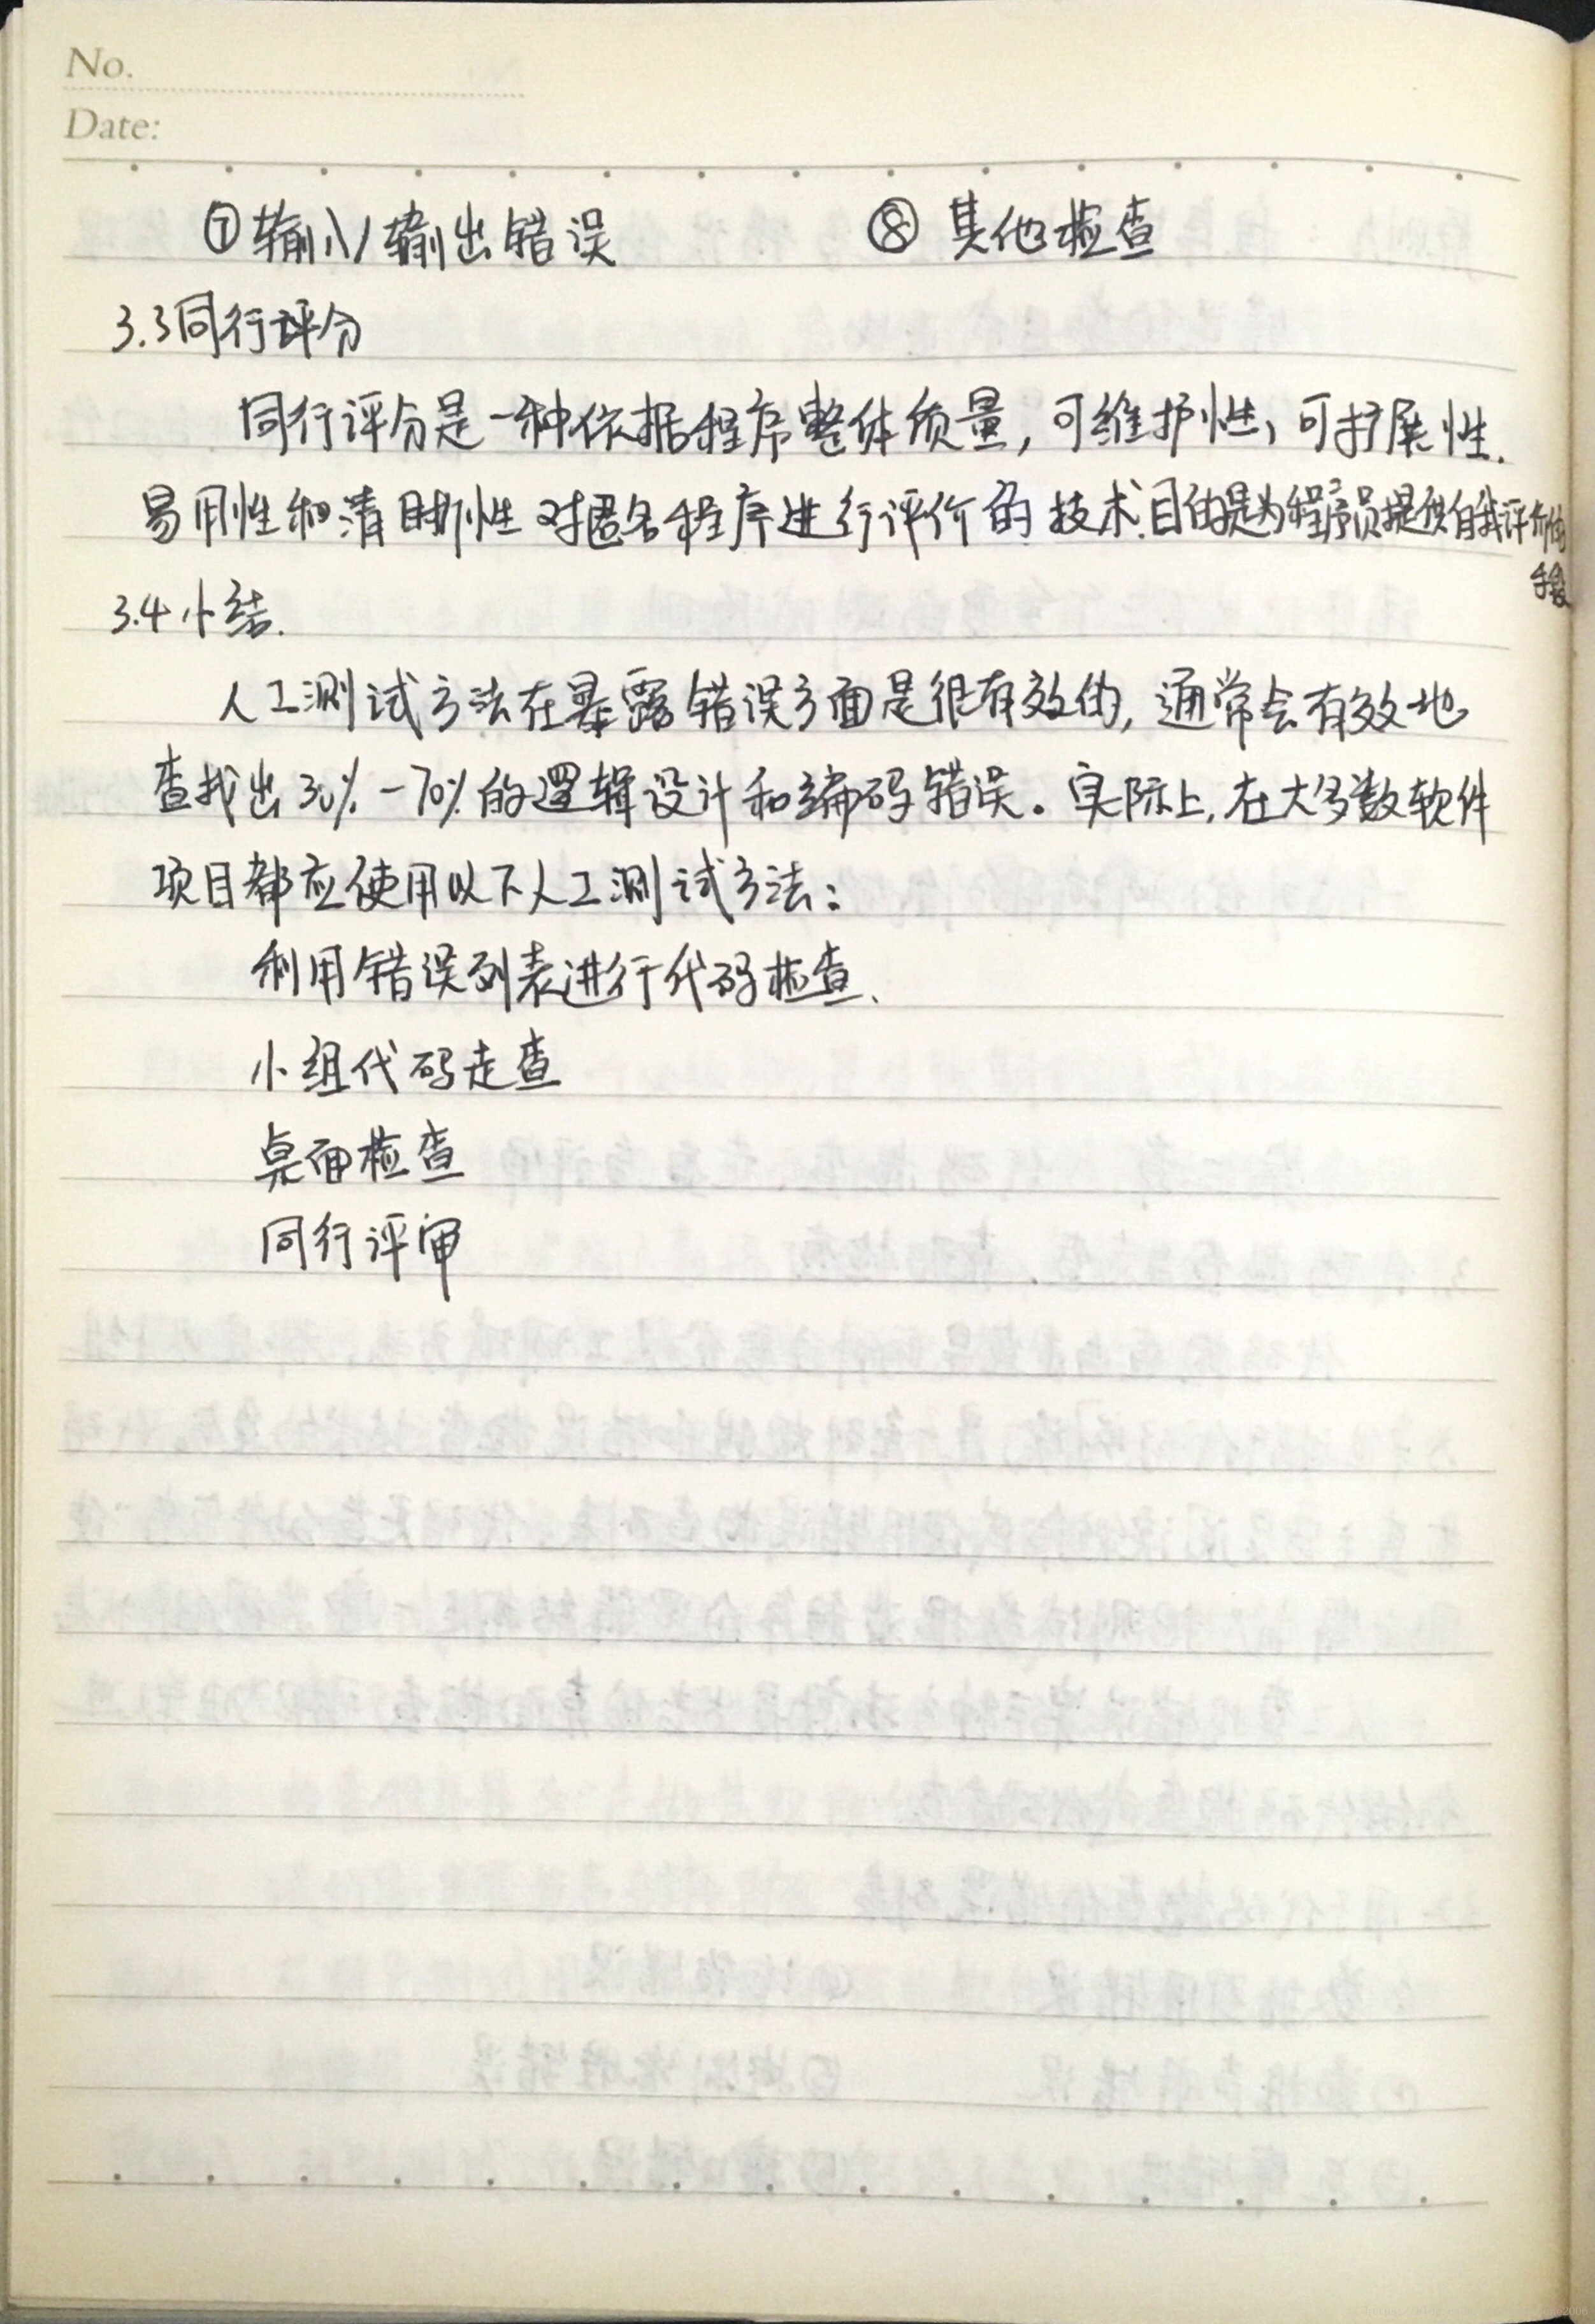 No.
Date:
⑦输入/输出错误 ⑧其他检查
3.3同行评分
同行评分是一种依据程序整体质量,可维护性、可扩展性.
易用性和清晰性对匿名程序进行评价的技术.目的是为程序员提供自我评价的
手段
3.4小结.
人工测试方法在暴露错误方面是很有效的,通常会有效地
查找出30%-70%的逻辑设计和编码错误。实际上,在大多数软件
项目都应使用以下人工测试方法:
利用错误列表进行代码检查、
小组代码走查
桌面检查
同行评审